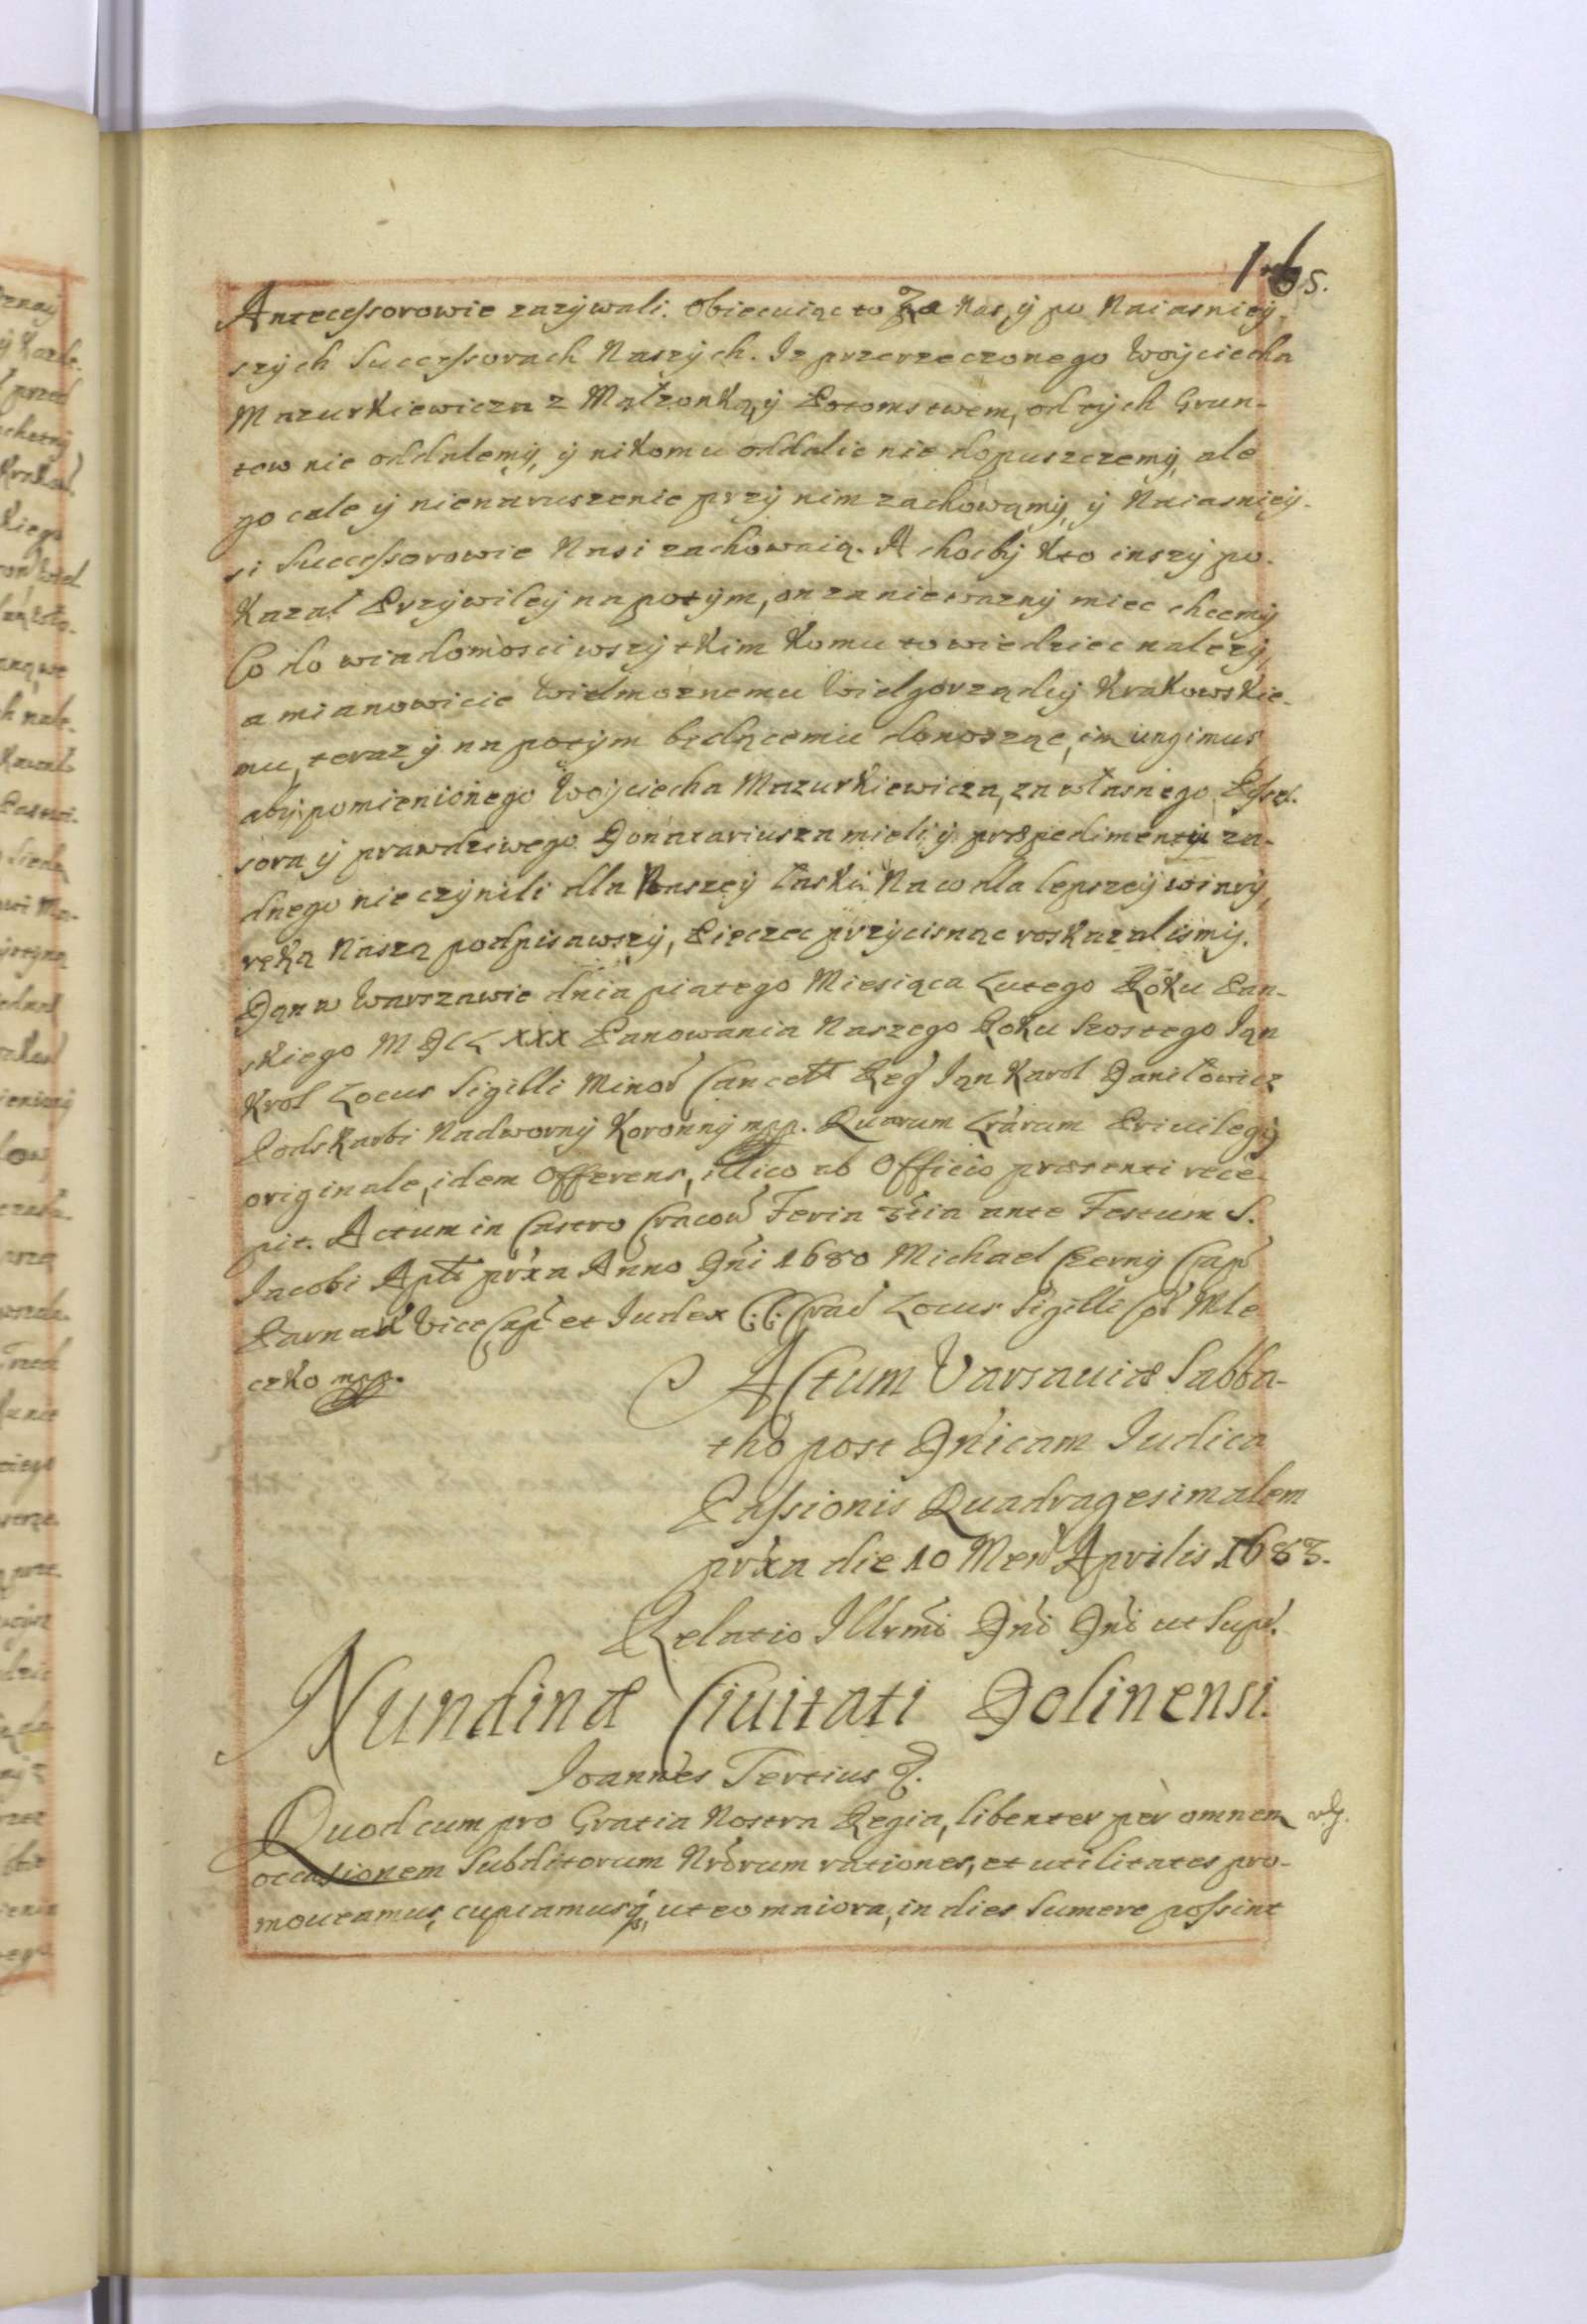 165.
Antecessorowie zazÿwali. Obiecuiąc to Za Nas, ÿ po Naiasnieÿ-
szÿch Successorach Naszÿch. Iz przerzeczonego Woÿciecha
Mazurkiewicza z Mąłzonką, ÿ Potomstwem, od tÿch Grun-
tow nie oddalemÿ, ÿ nikomu oddalic nie dopuszczemÿ, ale
go cale ÿ nienaruszenie przÿ nim zachowąmÿ, ÿ Naiasnieÿ-
si Successorowie Nasi zachowaią. A chocbÿ Kto inszÿ po-
Kazał Przÿwileÿ napotÿm, on za niewaznÿ miec chcemÿ
Co do wiadomosci wszÿtkim Komu to wiedziec nalezÿ,
a mianowicie Wielmoznemu Wielgorządcÿ Krakowskie-
mu, teraz ÿ na potÿm będącemu donosząc, iniungimus
abÿ pomienionego Woÿciecha Mazurkiewicza, za własnego Posses-
sora ÿ prawdziwego Donatariusza mieli, ÿ præpedimentÿ za-
dnego nie czÿnili dla Naszeÿ łaski. Na co dla lepszeÿ wiarÿ,
ręką Naszą podpisawszÿ, Pieczec przÿcisnąc roskazalismÿ.
Dąn w Warszawie dnia piątego Miesiąca Lutego Roku Pan-
skiego MDCLXXX Panowania Naszego Roku Szostego Iąn
Krol Locus Sigilli Minor Cancell Reg Iąn Karol Daniłowicz
Podskarbi Nadwornÿ Koronnÿ mpp. Quarum Lrarum Priuilegÿ
originale, idem Offerens, illico ab Officio præsenti rece-
pit. Actum in Castro Cracov Feria 3tia ante Festum S.
Iacobi Apli prxa Anno Dni 1680 Michael Czernÿ Cap
Parnav Vice Cap et Iudex C. C. Crac Locus Sigilli Cor Mle
czko mpp.
Actum Varsauiæ Sabba-
tho post Dnicam Iudica
Passionis Quadragesimalem
prxa die 10 Mens Aprilis 1683.
Relatio Illrmi Dni Dni ut Sup.
Nundinæ Ciuitati Dolinensi.
Ioannes Tertius &.
Quod cum pro Gratia Nostra Regia, libenter per omnem
occasionem Subditorum Nrorum rationes, et utilitates pro-
moueamus, cupiamusq, ut eo maiora, in dies Sumere possint